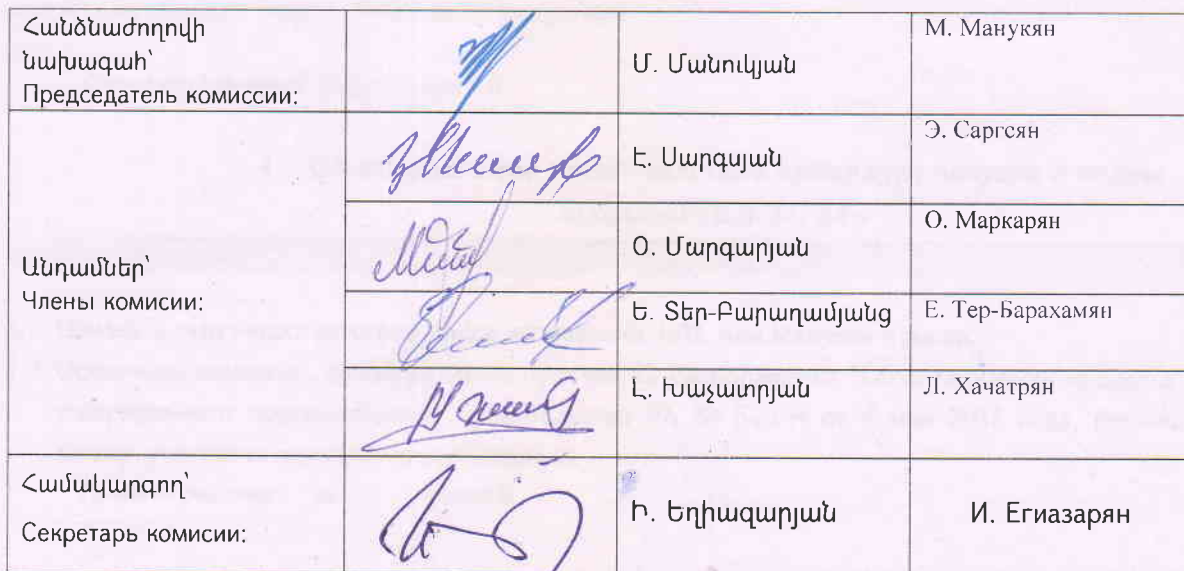 Հանձնաժողովի
նախագահ՝
Председатель комиссии:
Մ. Մանուկյան
М. Манукян
Անդամներ՝
Члены комисии:
Է. Սարգսյան
Э. Саргсян
Օ. Մարգարյան
О. Маркарян
Ե. Տեր-Բարաղամյանց
Е. Тер-Барахамян
Լ. Խաչատրյան
Л. Хачатрян
Համակարգող՝
Секретарь комисии:
Ի. Եղիազարյան
И. Егиазарян